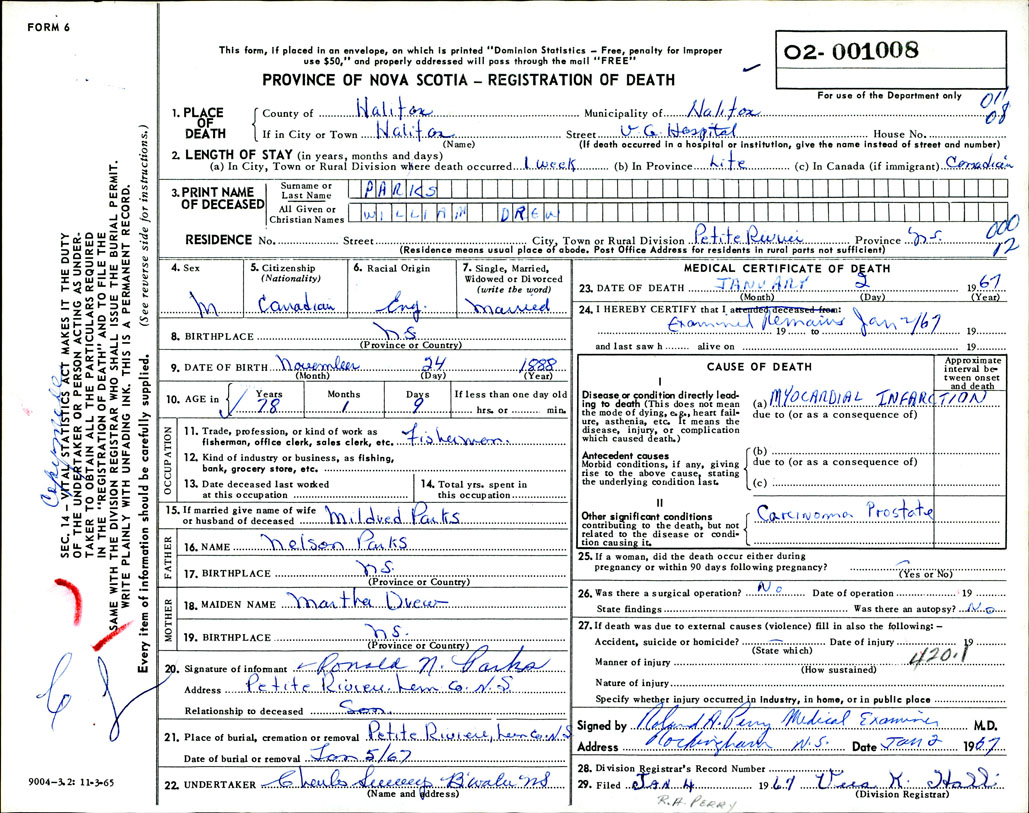 FORM 6
This form, if placed in an envelope, on which is printed "Dominion Statistics – Free, penalty for improper
use $50," and properly addressed will pass through the mail "FREE"
PROVINCE OF NOVA SCOTIA – REGISTRATION OF DEATH
02- 001008
For use of the Department only
08
1. PLACE OF DEATH
County of Halifax Municipality of Halifax
If in City or Town Halifax Street V G. Hospital House No.
(Name) (If death occurred in a hospital or institution, give the name instead of street and number)
2. LENGTH OF STAY (in years, months and days)
(a) In City, Town or Rural Division where death occurred 1 week (b) In Province Life (c) In Canada (if immigrant) Canadian
3. PRINT NAME OF DECEASED
Surname or Last Name PARKS
All Given or Christian Names WILLIAM DREW
RESIDENCE No. Street City, Town or Rural Division Petite Riviere Province N.S.
(Residence means usual place of abode. Post Office Address for residents in rural parts not sufficient)
000
12
4. Sex M
5. Citizenship (Nationality) Canadian
6. Racial Origin Eng.
7. Single, Married, Widowed or Divorced (write the word) Married
8. BIRTHPLACE N.S.
(Province or Country)
9. DATE OF BIRTH November 24 1888
(Month) (Day) (Year)
10. AGE in Years 78 Months 1 Days 9 If less than one day old hrs. or min.
OCCUPATION
11. Trade, profession, or kind of work as
fisherman, office clerk, sales clerk, etc. Fisherman.
12. Kind of industry or business, as fishing,
bank, grocery store, etc.
13. Date deceased last worked
at this occupation
14. Total yrs. spent in
this occupation
15. If married give name of wife
or husband of deceased Mildred Parks
FATHER
16. NAME Nelson Parks
17. BIRTHPLACE N.S.
(Province or Country)
MOTHER
18. MAIDEN NAME Martha Drew
19. BIRTHPLACE N.S.
(Province or Country)
20. Signature of informant Ronald N. Parks
Address Petite Riviere. Lun Co. N.S
Relationship to deceased Son.
21. Place of burial, cremation or removal Petite Riviere, Lun Co. N.S
Date of burial or removal Jan 5/67
22. UNDERTAKER Charles B'water NS
(Name and address)
MEDICAL CERTIFICATE OF DEATH
23. DATE OF DEATH JANUARY 2 1967
(Month) (Day) (Year)
24. I HEREBY CERTIFY that I attended deceased from:
Examined Remains Jan 2/67
19 to 19
and last saw h alive on 19
CAUSE OF DEATH
Approximate interval between onset and death
I
Disease or condition directly leading to death (This does not mean the mode of dying, e.g., heart failure, asthenia, etc. It means the disease, injury, or complication which caused death.)
(a) MYOCARDIAL INFARCTION
due to (or as a consequence of)
Antecedent causes
Morbid conditions, if any, giving rise to the above cause, stating the underlying condition last.
(b)
due to (or as a consequence of)
(c)
II
Other significant conditions
contributing to the death, but not related to the disease or condition causing it.
Carcinoma Prostate
25. If a woman, did the death occur either during
pregnancy or within 90 days following pregnancy?
(Yes or No)
26. Was there a surgical operation? No Date of operation 19
State findings Was there an autopsy? No
27. If death was due to external causes (violence) fill in also the following: –
Accident, suicide or homicide? Date of injury 19
(State which)
420.1
Manner of injury
(How sustained)
Nature of injury
Specify whether injury occurred in Industry, in home, or in public place
Signed by Roland A. Perry Medical Examiner M.D.
Address Rockingham N.S. Date JAN 2 1967
28. Division Registrar's Record Number
29. Filed JAN 4 1967
(Division Registrar)
R.A. PERRY
SEC. 14 – VITAL STATISTICS ACT MAKES IT THE DUTY
OF THE UNDERTAKER OR PERSON ACTING AS UNDER-
TAKER TO OBTAIN ALL THE PARTICULARS REQUIRED
IN THE "REGISTRATION OF DEATH" AND TO FILE THE
SAME WITH THE DIVISION REGISTRAR WHO SHALL ISSUE THE BURIAL PERMIT.
WRITE PLAINLY WITH UNFADING INK. THIS IS A PERMANENT RECORD.
Every item of information should be carefully supplied. (See reverse side for instructions.)
9004–3.2: 11-3-65